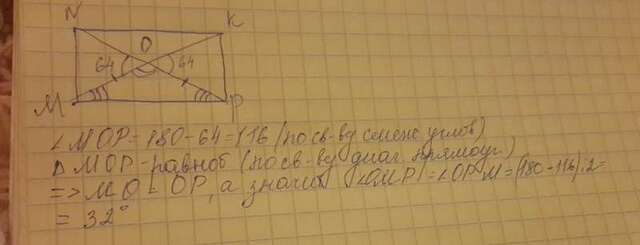 N K
O
64 64
M P
∠MOP = 180 - 64 = 116 (по св-ву смежн углов)
Δ MOP - равноб (по св-ву диаг. прямоуг.)
=> MO = OP, а значит ∠OMP = ∠OPM = (180 - 116) : 2 =
= 32°